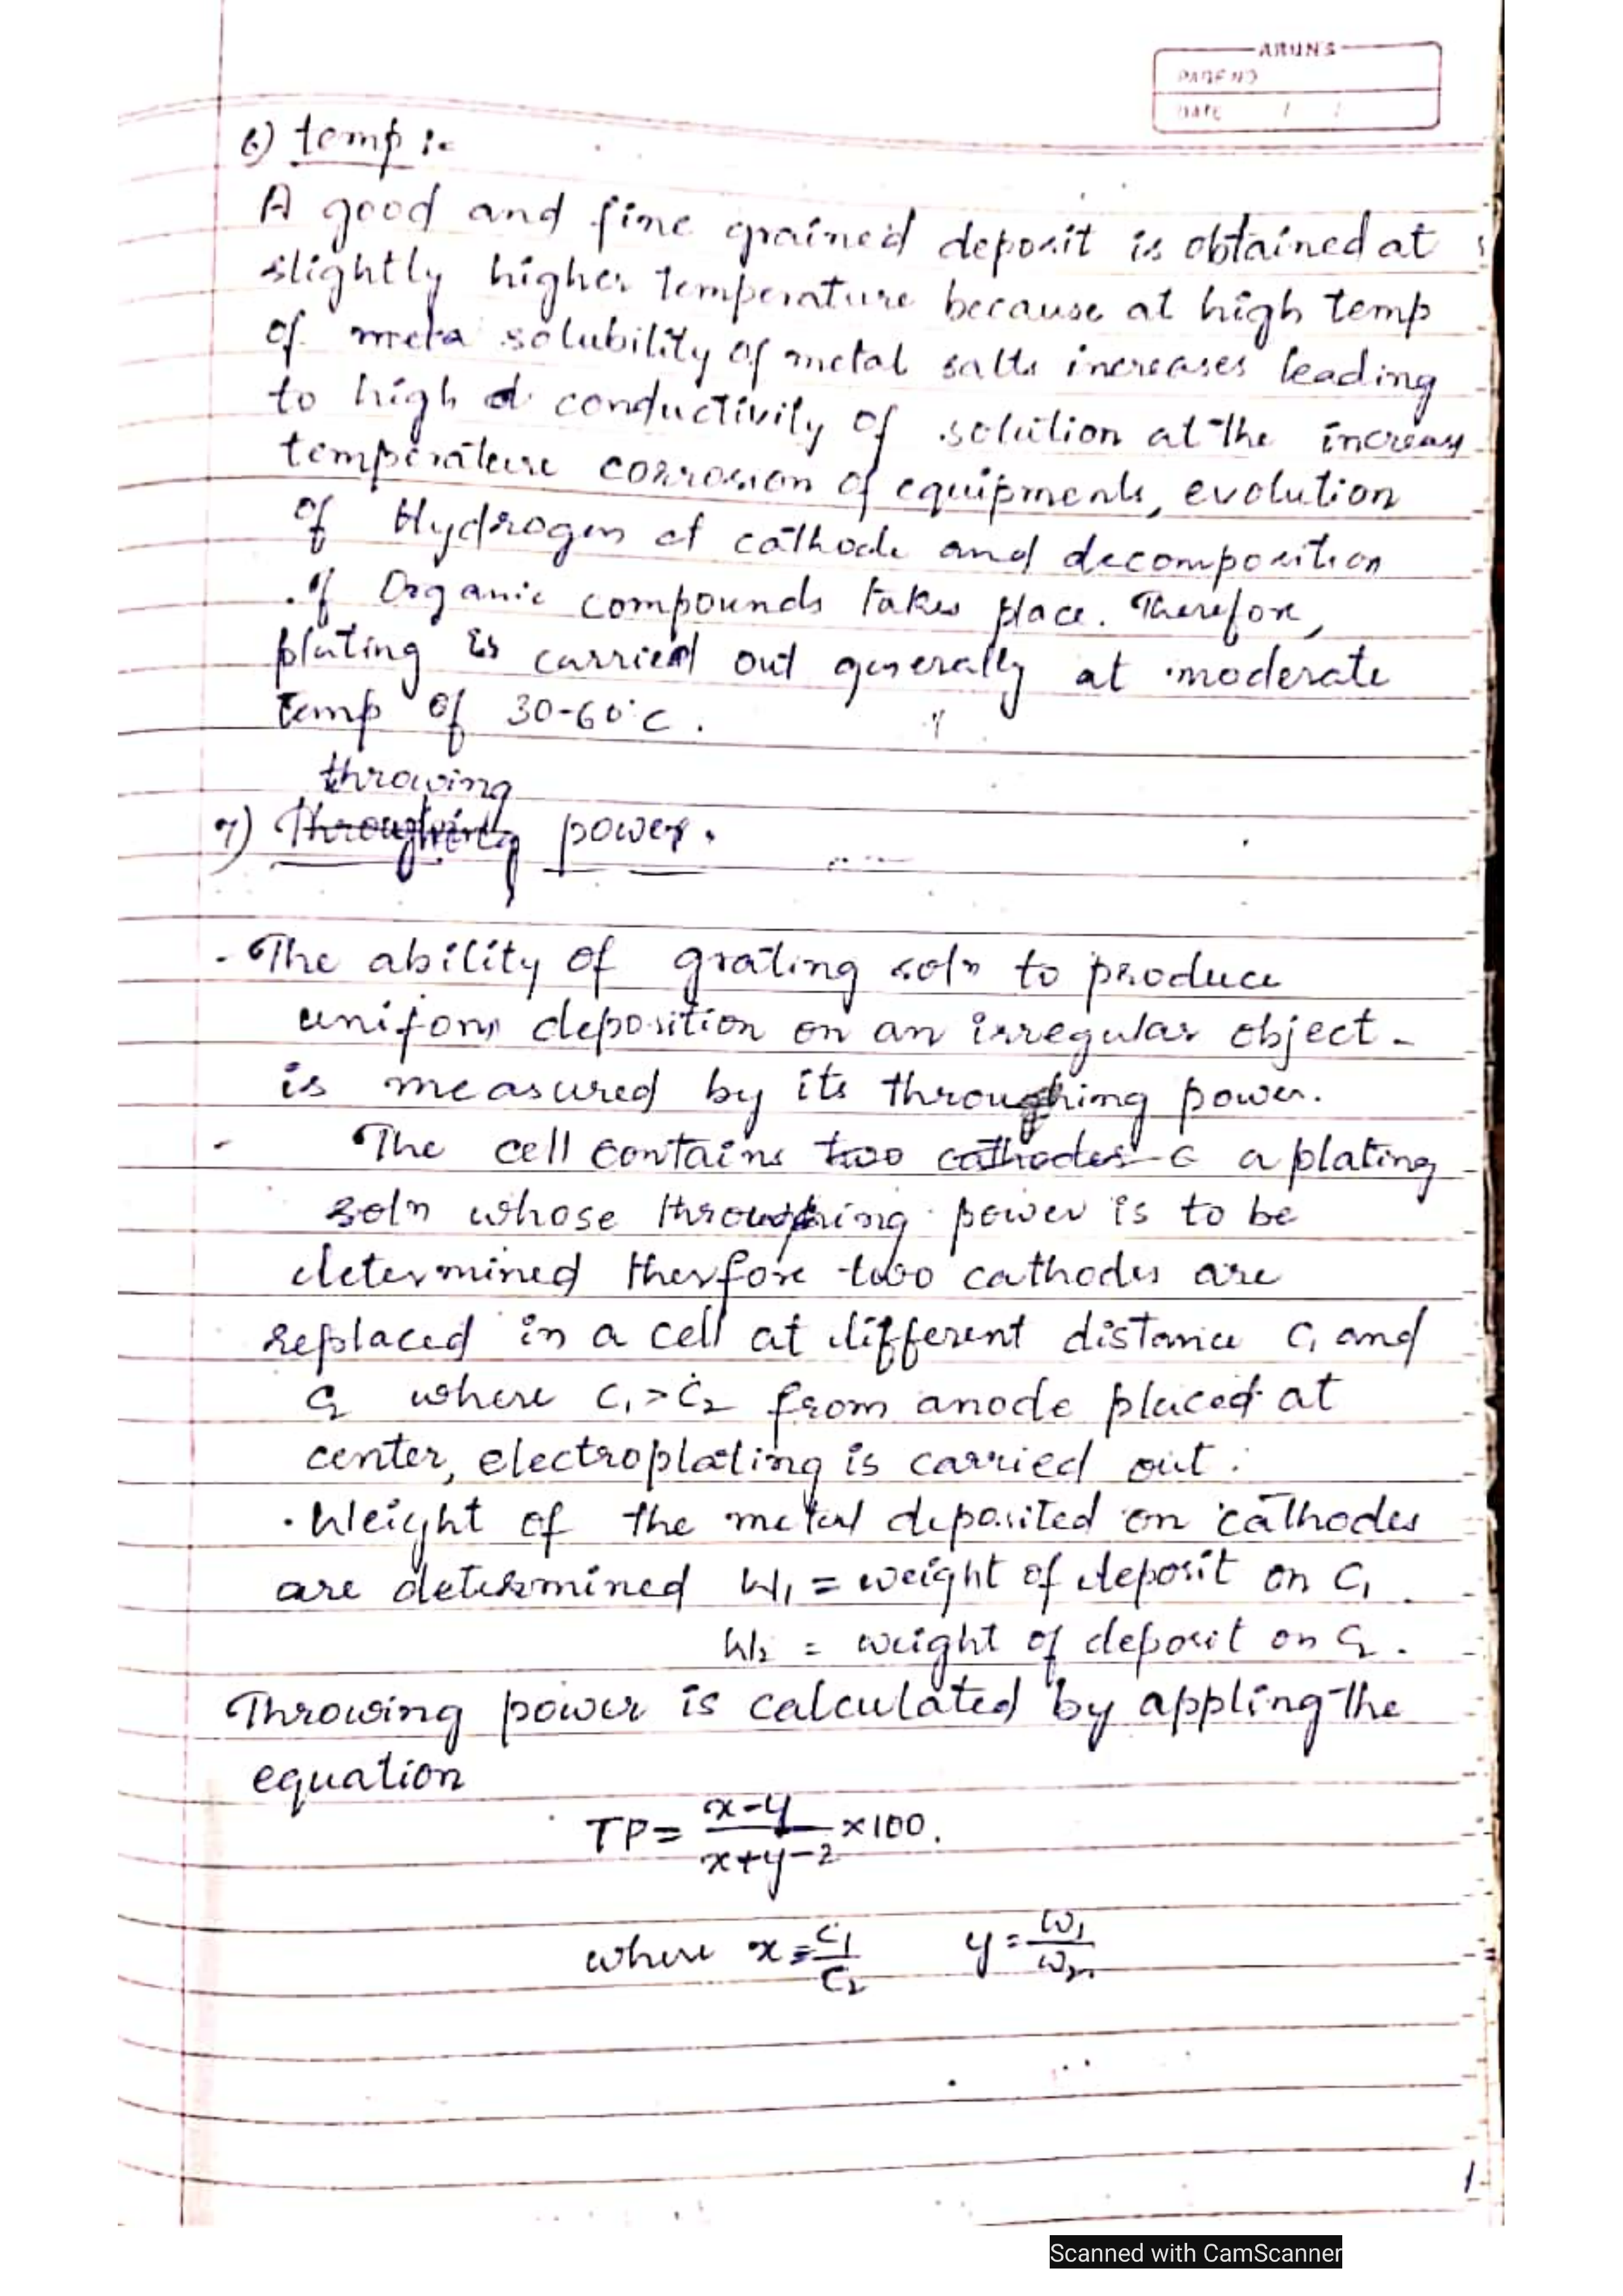 ARUN'S
PAGE NO
DATE / /
6) temp :-
A good and fine grained deposit is obtained at
slightly higher temperature because at high temp
of meta solubility of metal salts increases leading
to high d conductivity of solution at the increase
temperature corrosion of equipments, evolution
of Hydrogen at cathode and decomposition
of Organic compounds takes place. Therefore,
plating is carried out generally at moderate
temp of 30-60°C.
throwing
7) Throughing power.
- The ability of grating soln to produce
uniform deposition on an irregular object -
is measured by its throughing power.
- The cell contains two cathodes c a plating
soln whose power is to be
determined therfore two cathodes are
replaced in a cell at different distance C₁ and
C₂ where C₁ > C₂ from anode placed at
center, electroplating is carried out.
· Weight of the metal deposited on cathodes
are determined W₁ = weight of deposit on C₁
W₂ = weight of deposit on C₂.
Throwing power is calculated by appling the
equation
TP = x-y / x+y-2 × 100.
where x = C₁/C₂ y = W₁/W₂
1
Scanned with CamScanner